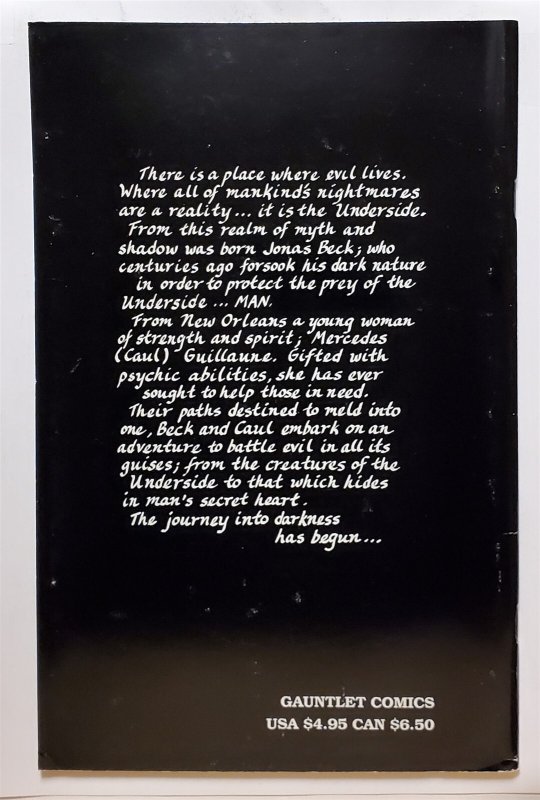 There is a place where evil lives.
Where all of mankind's nightmares
are a reality... it is the Underside.
From this realm of myth and
shadow was born Jonas Beck; who
centuries ago forsook his dark nature
in order to protect the prey of the
Underside ... MAN.
From New Orleans a young woman
of strength and spirit; Mercedes
(Caul) Guillaune. Gifted with
psychic abilities, she has ever
sought to help those in need.
Their paths destined to meld into
one, Beck and Caul embark on an
adventure to battle evil in all its
guises; from the creatures of the
Underside to that which hides
in man's secret heart.
The journey into darkness
has begun...
GAUNTLET COMICS
USA $4.95 CAN $6.50